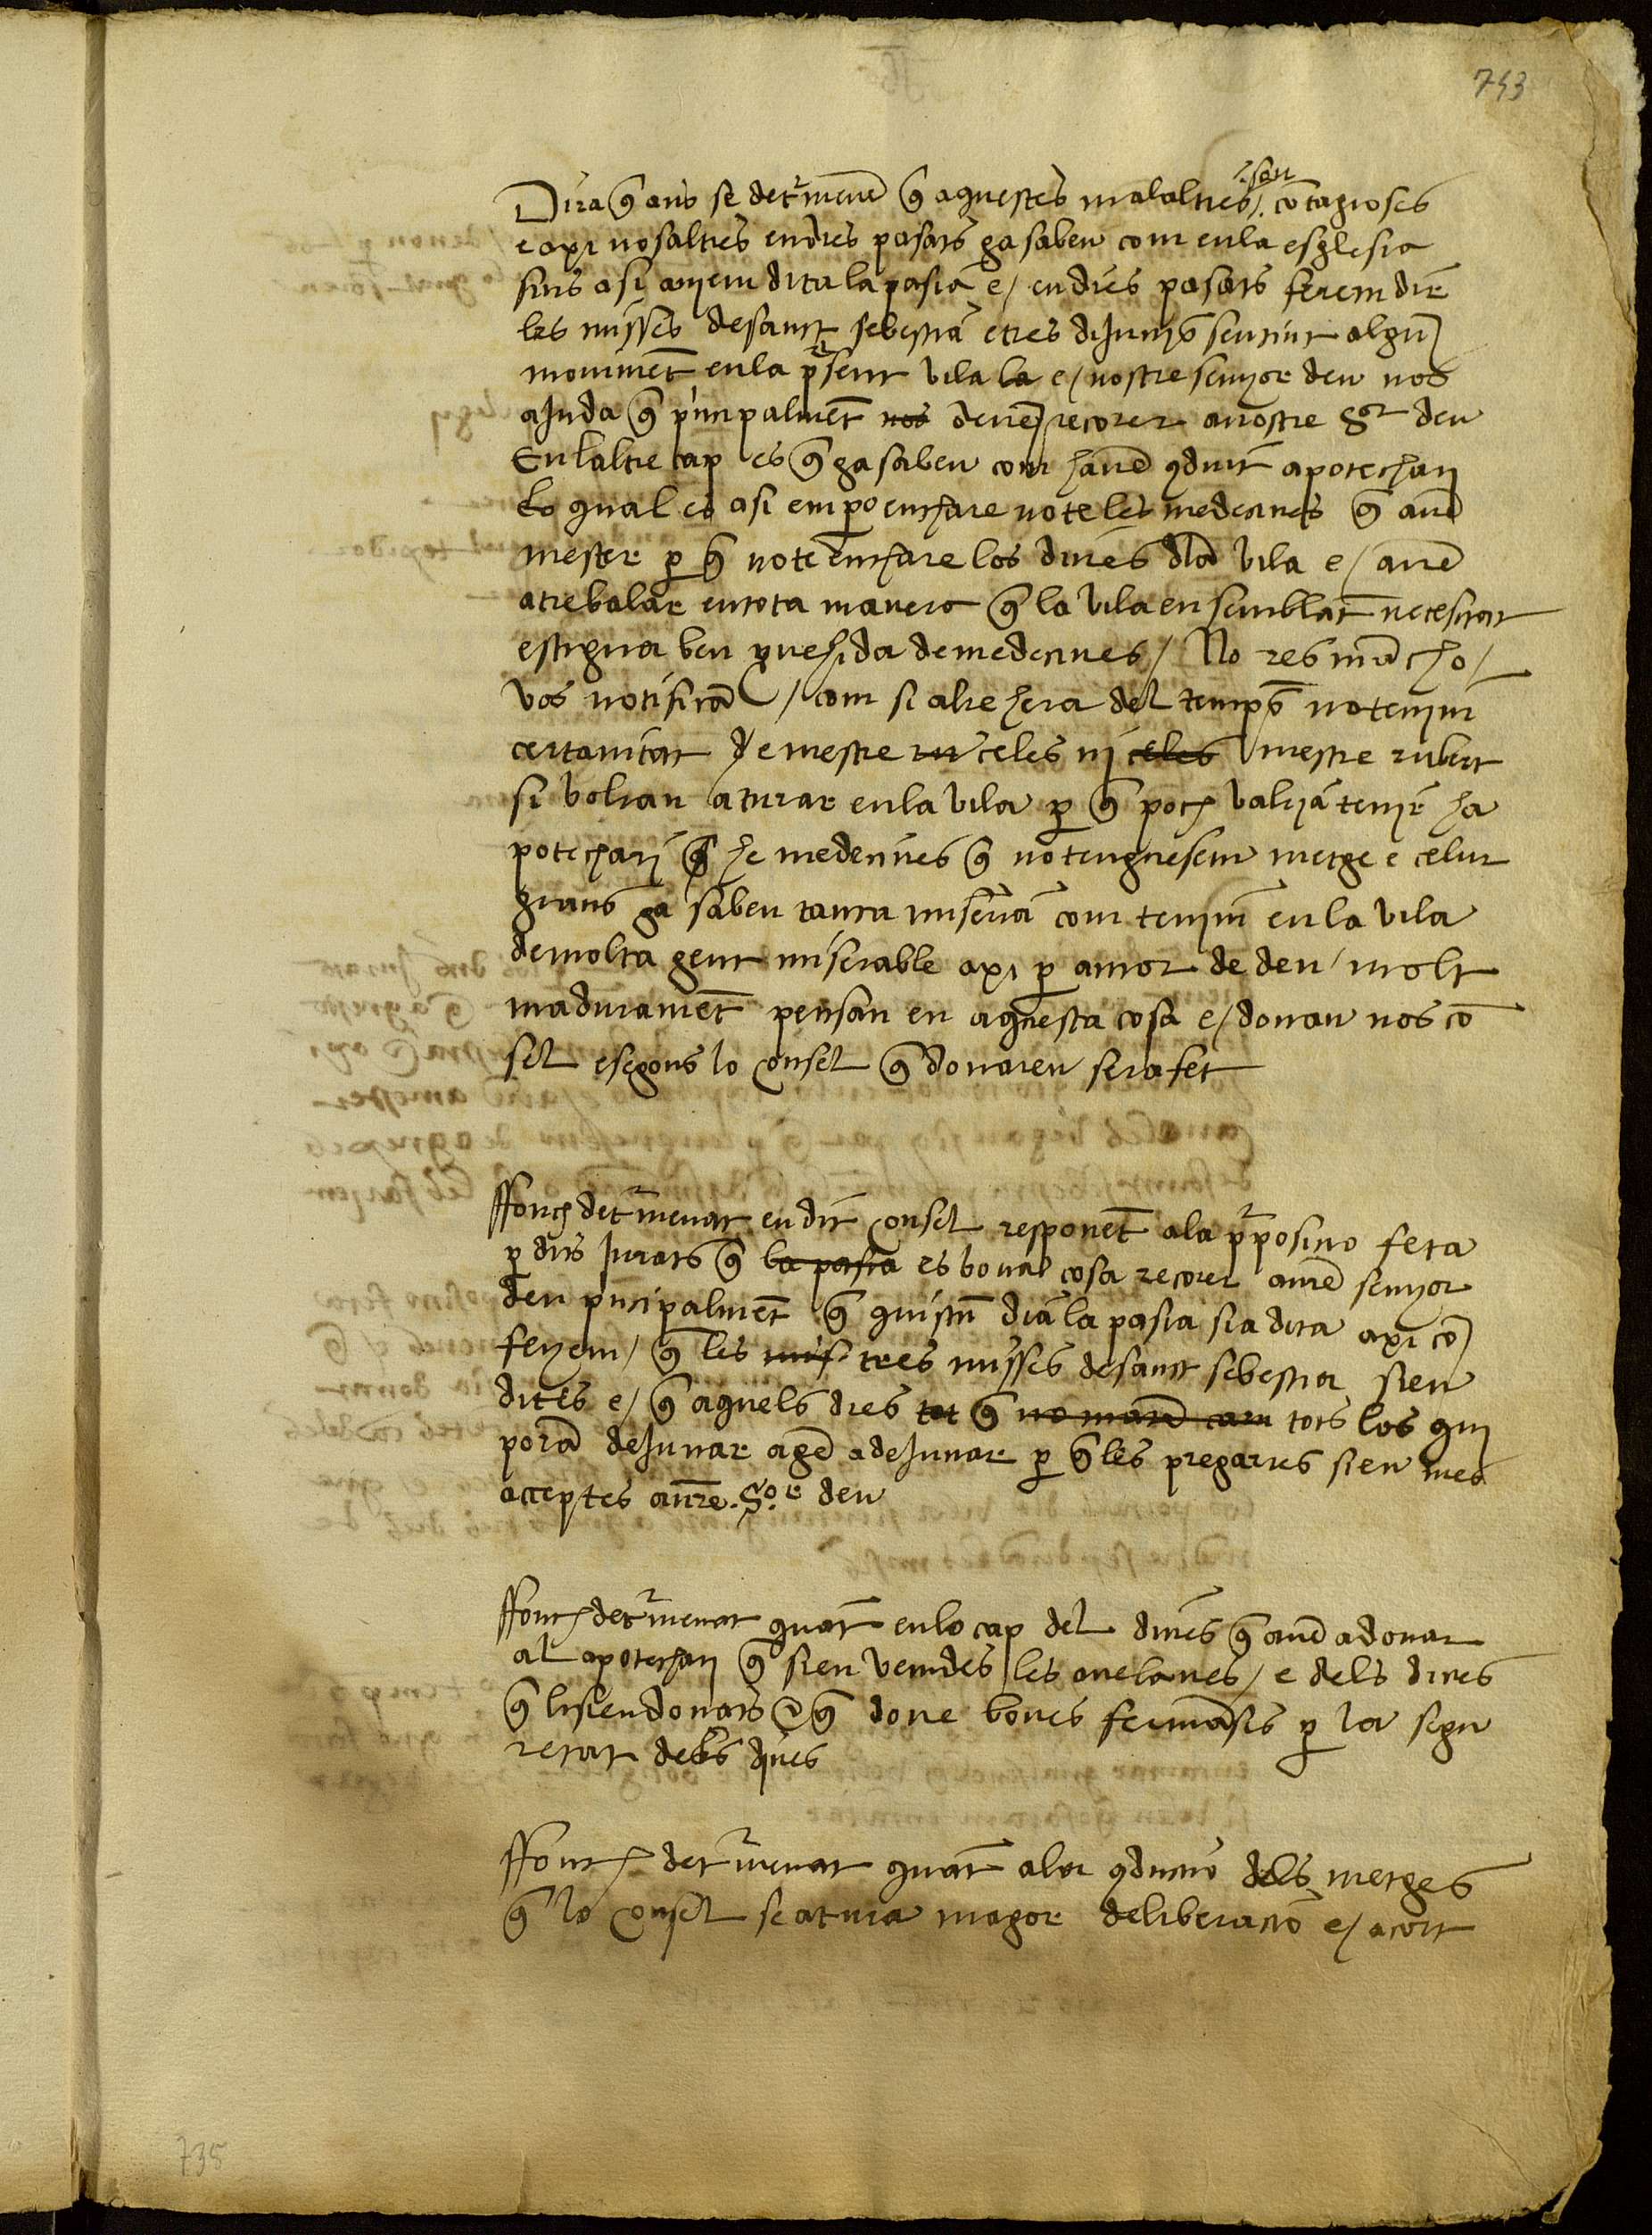 743
Dira q̃ ans se determene q̃ aquestes malalties son cõtagioses
e axi nosaltres en dies pasats ga sabeu com en la esglesia
fins asi aujem dita la pasia e/ en dies pasats ferem dir
les misses de sanct sebestiã e tres dijunis sentint algũ
moviment en la p̃sent vila la e/ nostre senyor deu nos
ajuda q̃ principalmẽt nos devẽ recorer a nostre Sor deu
En laltre cap es q̃ ga sabeu com havẽ cõduit apotechari
lo qual es asi empero enchare no te les medecines q̃ avẽ
mester per q̃ no te enchare los dines dla vila e/ avẽ
a trebalar en tota manera q̃ la vila en semblãt necesitat
estigua ben prouehida de medecines / No res mã cho/
vos notificã / com si altre hera del temps no tenim
certanitat de mestre celes nj celes mestre rubert
si volian aturar en la vila per q̃ poch valriã tenir ha
potecharj he medecines q̃ no tenguesem metge e celur
gians ga sabeu tanta miseriã com tenim en la vila
de molta gent miserable axi per amor de deu / molt
maduramẽt pensau en aquesta cosa e/ donau nos cõ
sel e segons lo consel q̃ donareu sera fet
ffonch determenat en dit consel responẽt a la preposicio feta
per dits Jurats q̃ la pasia es bona cosa recorer a nrẽ senyor
deu principalmẽt q̃ quiscũ diã la pasia sia dita axi cõ
feyem / q̃ les mis tres misses de sanct sebestia sien
dites e/ q̃ aquels dies tot q̃ no mãgẽ carn tots los qui
porã dejunar agẽ a dejunar per q̃ les pregaries sien mes
acceptes a nrẽ. Sor deu
ffonch determenat quãt en lo cap del dines q̃ avẽ a donar
al apotecharj q̃ sien venudes les avelanes / e dels dines
q̃ li sien donats e q̃ done bones fermãses per la segu
retat dels dines
ffonch determenat quãt a la cõductio dels metges
q̃ lo consel se atura magor deliberacio e/ acort
735